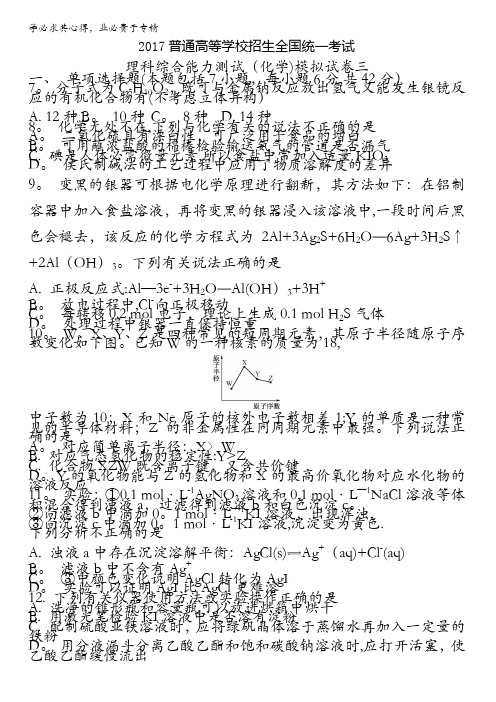 学必求其心得，业必贵于专精
2017普通高等学校招生全国统一考试
理科综合能力测试（化学)模拟试卷三
一、 单项选择题(本题包括7小题，每小题6分,共42分）
7。 分子式为C5H10O3,既可与金属钠反应放出氢气又能发生银镜反
应的有机化合物有(不考虑立体异构）
A. 12种B。 10种 C。 8种 D. 14种
8。 化学无处不在,下列与化学有关的说法不正确的是
A。 二氧化硫具有漂白性，可广泛用于食品的增白
B。 可用蘸浓盐酸的棉棒检验输送氨气的管道是否漏气
C. 碘是人体必需微量元素,所以食盐中常加入适量KIO3
D。 侯氏制碱法的工艺过程中应用了物质溶解度的差异
9。 变黑的银器可根据电化学原理进行翻新，其方法如下：在铝制
容器中加入食盐溶液，再将变黑的银器浸入该溶液中,一段时间后黑
色会褪去，该反应的化学方程式为 2Al+3Ag2S+6H2O—6Ag+3H2S↑
+2Al（OH）3。下列有关说法正确的是
A. 正极反应式:Al—3e-+3H2O—Al(OH）3+3H+
B。 放电过程中,Cl-向正极移动
C。 每转移0.2 mol电子，理论上生成0.1 mol H2S气体
D。 处理过程中银器一直保持恒重
10。 W、X、Y、Z是四种常见的短周期元素，其原子半径随原子序
数变化如下图。已知W的一种核素的质量为18,
原子半径
X
Y
W
Z
原子序数
中子数为10；X和Ne原子的核外电子数相差1;Y的单质是一种常
见的半导体材料；Z的非金属性在同周期元素中最强。下列说法正
确的是
A。 对应简单离子半径：X〉W
B. 对应气态氢化物的稳定性:Y>Z
C. 化合物XZW既含离子键，又含共价键
D。 Y的氧化物能与Z的氢化物和X的最高价氧化物对应水化物的
溶液反应
11。 实验：①0.1 mol·L-1AgNO3溶液和0.1 mol·L-1NaCl溶液等体
积混合得到浊液a，过滤得到滤液b和白色沉淀c。
②向滤液b中滴加0。1 mol·L-1KI溶液，出现浑浊。
③向沉淀c中滴加0。1 mol·L-1KI溶液,沉淀变为黄色.
下列分析不正确的是
A. 浊液a中存在沉淀溶解平衡：AgCl(s)⇌Ag+（aq)+Cl-(aq)
B。 滤液b中不含有Ag+
C。 ③中颜色变化说明AgCl转化为AgI
D。 实验可以证明AgI比AgCl更难溶
12。 下列有关仪器使用方法或实验操作正确的是
A. 洗净的锥形瓶和容量瓶可以放进烘箱中烘干
B. 用激光笔检验KI溶液中是否溶有淀粉
C. 配制硫酸亚铁溶液时，应将绿矾晶体溶于蒸馏水再加入一定量的
铁粉
D。 用分液漏斗分离乙酸乙酯和饱和碳酸钠溶液时,应打开活塞，使
乙酸乙酯缓慢流出